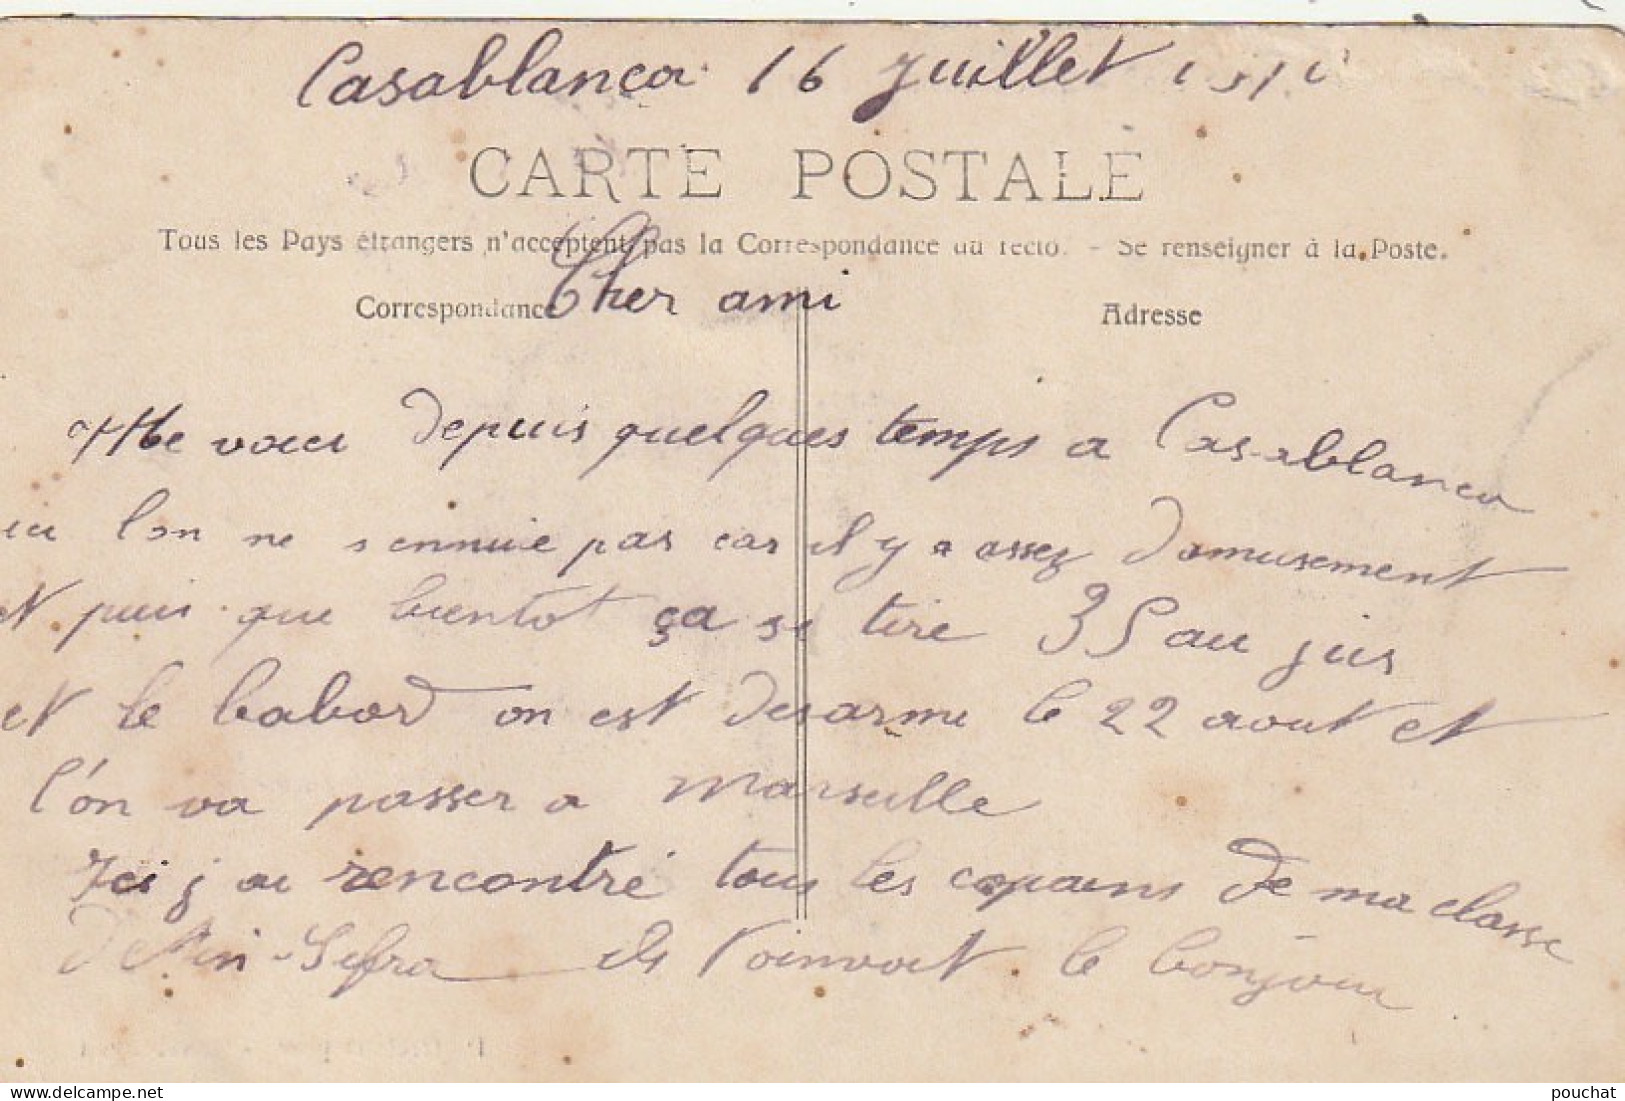 Casablanca 16 Juillet
CARTE POSTALE
Tous les Pays étrangers n'acceptent pas la Correspondance au recto. - Se renseigner à la Poste.
Correspondance Cher ami Adresse
Me voici depuis quelques temps a Casablanca
ou l'on ne s'ennuie pas car il y a assez d'amusement
et puis que bientot ça se tire 35 au jus
et le babord on est desarme le 22 aout et
l'on va passer a Marseille
Ici j ai rencontré tous les copains de ma classe
d'Ain-Sefra ils t'oinvoit le bonjour
pouchat